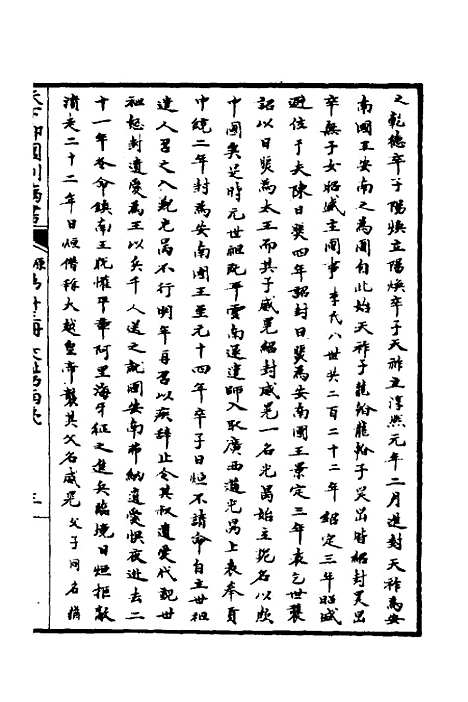 之乾德卒子陽煥立陽煥卒子天祚立淳熙元年二月進封天祚爲安
南國王安南之爲國自此始天祚子龍翰龍翰子昊旵時紹封昊旵
卒無子女昭盛主國事李氏八世共二百二十二年紹定三年昭盛
避位于夫陳日煚四年詔封日煚爲安南國王景定三年表乞世襲
詔以日煚爲太王而其子威晃紹封威晃一名光昺始主詭名以欺
中國矣是時元世祖既平雲南遂遣師入取廣西道光昺上表奉貢
中統二年封爲安南國王至元十四年卒子日烜不請命自立世祖
遣人召之入覲光昺不行明年再召以疾辭止令其叔遺愛代覲世
祖怒封遺愛爲王以兵千人送之就國安南弗納遺愛懼夜逃去二
十一年冬命鎮南王脫懽平章阿里海牙征之進兵臨境日烜拒敵
潰走二十二年日烜僭稱大越皇帝襲其父名威晃父子同名猾
天下郡國利病書
原 册 交阯 西夷
三